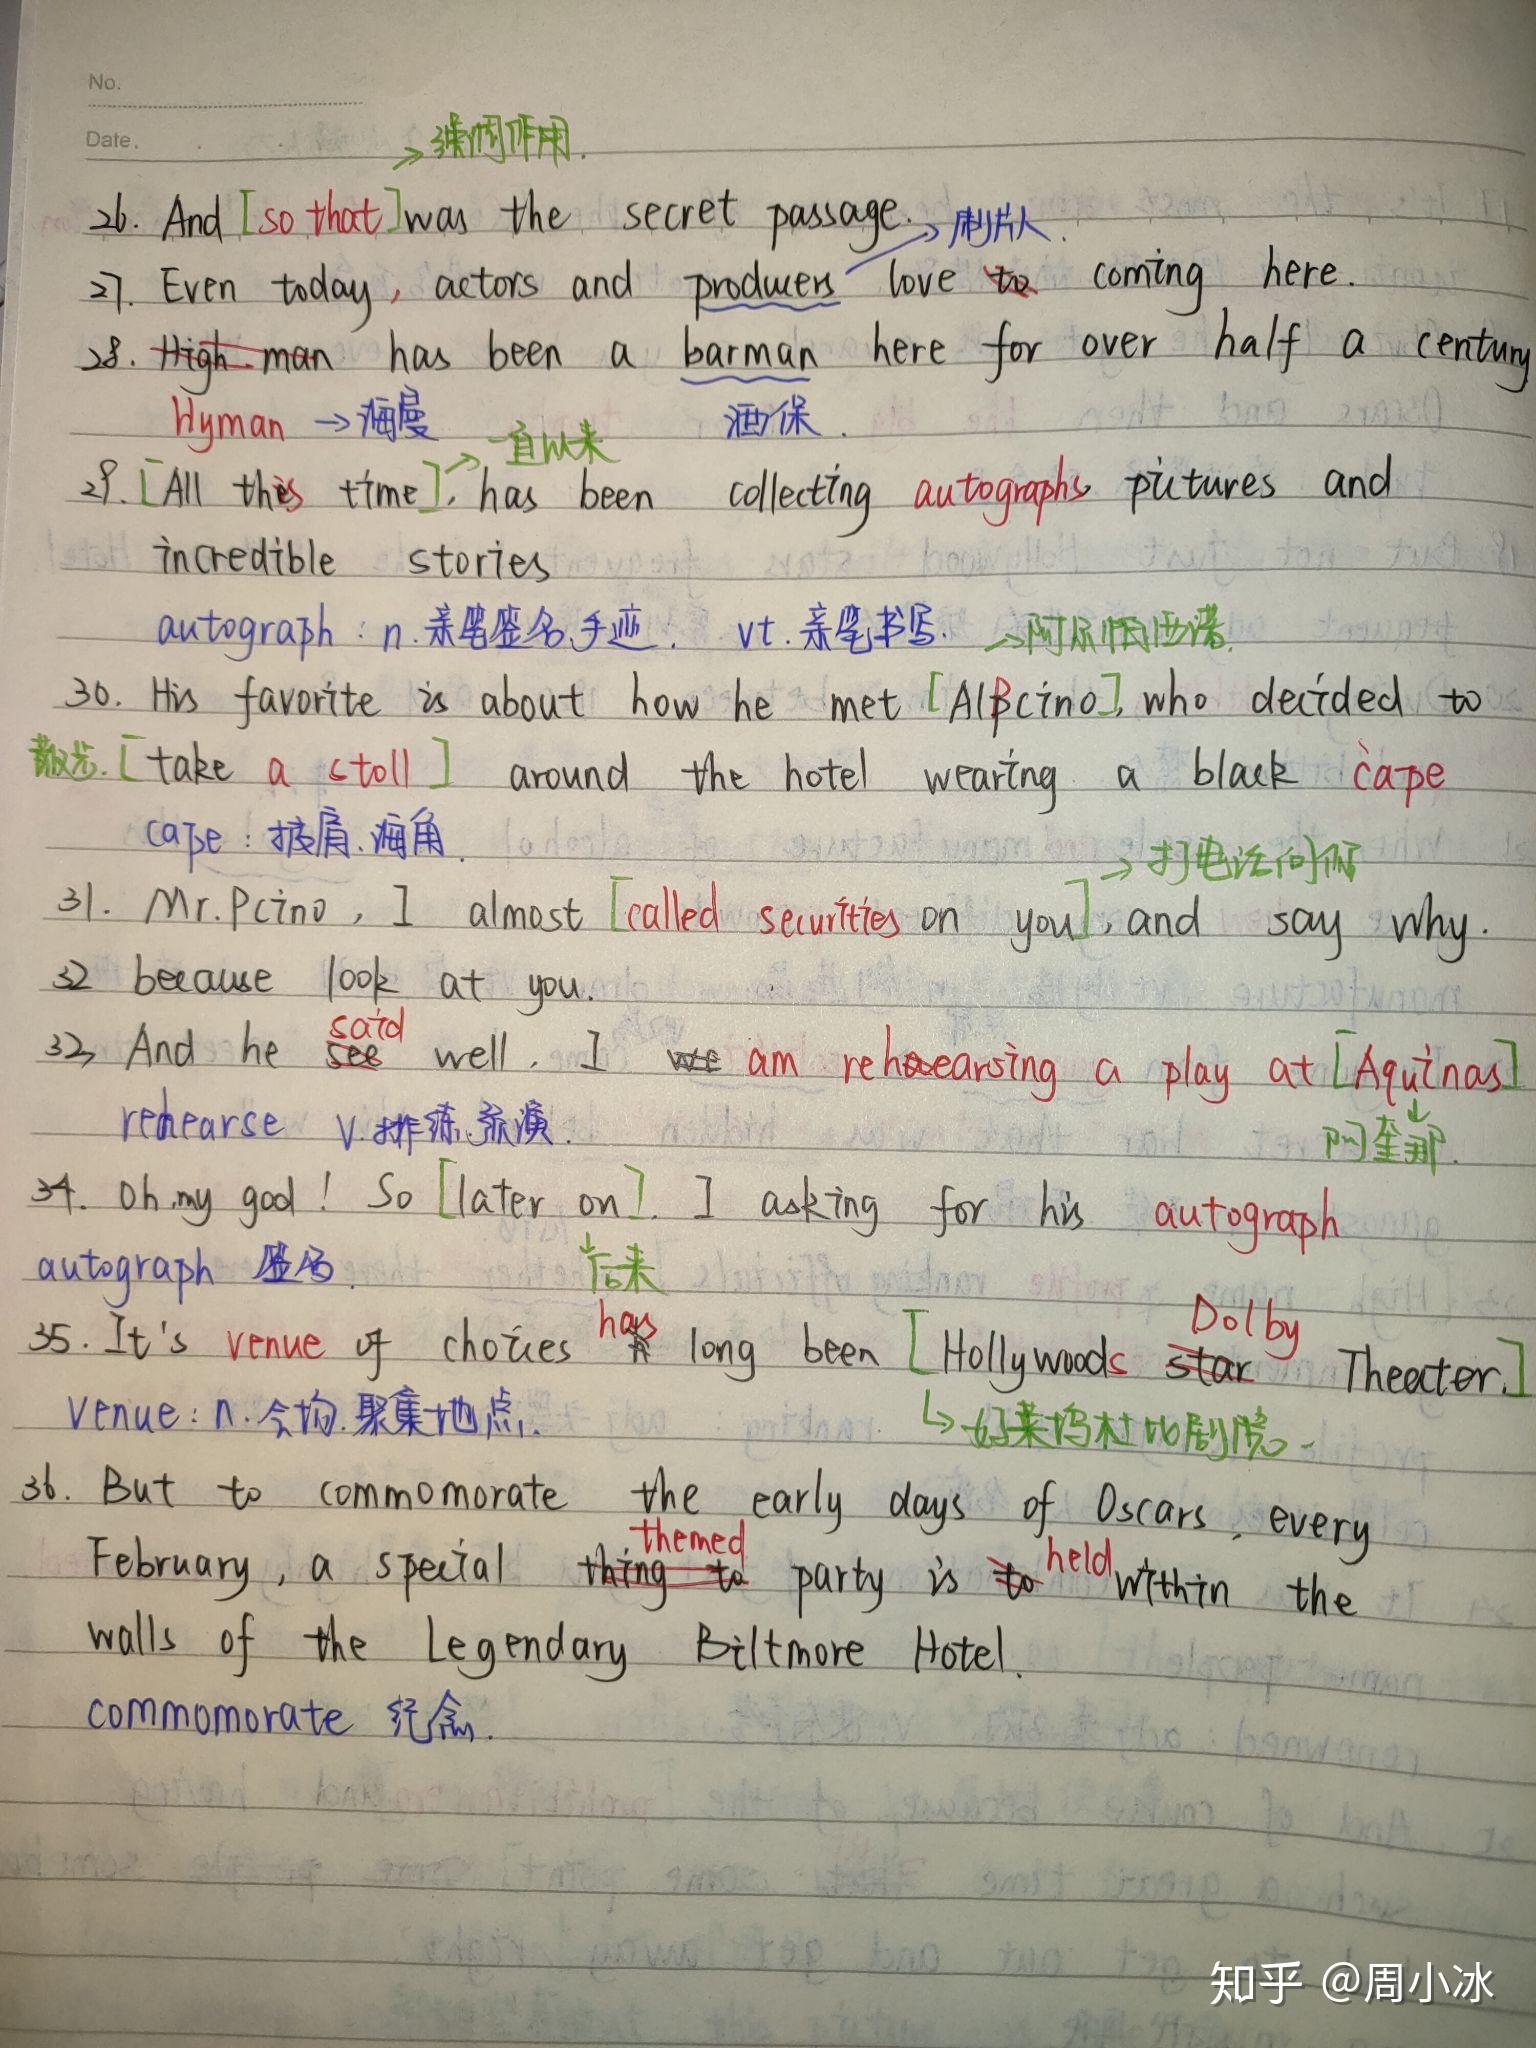 No.
Date.
→强调作用.
26. And [so that] was the secret passage.
→制片人.
27. Even today, actors and producers love to coming here.
28. High man has been a barman here for over half a century
Hyman →海曼 酒保.
→一直以来
29. [All this time], has been collecting autographs pictures and
incredible stories
autograph: n.亲笔签名,手迹. vt.亲笔书写.
→阿尔帕西诺.
30. His favorite is about how he met [AlPcino], who decided to
散步. [take a stoll] around the hotel wearing a black cape
cape: 披肩.海角.
→打电话问候
31. Mr.Pcino, I almost [called securities on you], and say why.
32 because look at you.
said
33 And he see well. I we am rehearsing a play at [Aquinas]
rehearse v.排练.预演. 阿奎那.
34. Oh my god! So [later on]. I asking for his autograph
autograph 签名. 后来
has Dolby
35. It's venue of choices long been [Hollywoods star Theector.]
venue: n.会场.聚集地点. 好莱坞杜比剧院.
36. But to commomorate the early days of Oscars, every
themed held
February, a special thing to party is to within the
walls of the Legendary Biltmore Hotel.
commomorate 纪念.
知乎 @周小冰